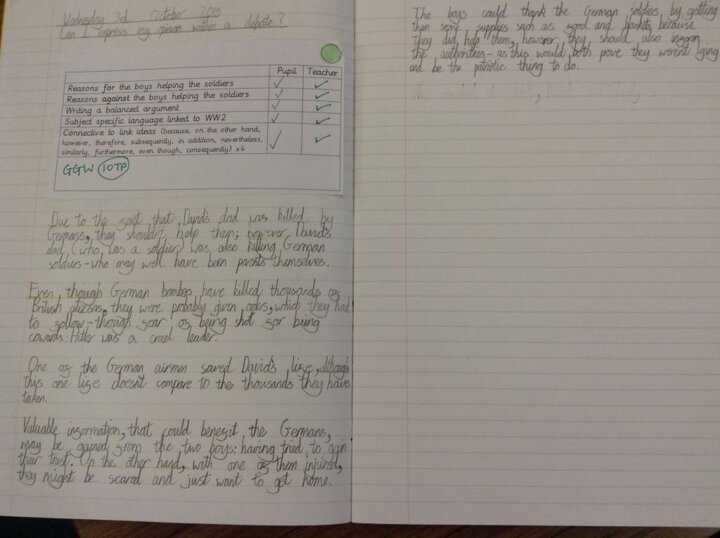 Wednesday 3rd October 2018
Can I express my opinion within a debate?
Pupil Teacher
Reasons for the boys helping the soldiers
Reasons against the boys helping the soldiers
Writing a balanced argument
Subject specific language linked to WW2
Connective to link ideas (because, on the other hand,
however, therefore, subsequently, in addition, nevertheless,
similarly, furthermore, even though, consequently) x4
GGW IOTP
Due to the fact that David's dad was killed by
Germans, they shouldn't help them; however David's
dad (who was a soldier) was also killing German
soldiers - who may well have been parents themselves.
Even though German bombers have killed thousands of
British citizens, they were probably given orders, which they had
to follow - through fear of being shot for being
cowards: Hitler was a cruel leader.
One of the German airmen saved David's life, although
this one life doesn't compare to the thousands they have
taken.
Valuable information, that could benefit the Germans,
may be gained from the two boys: having tried to gain
their trust. On the other hand, with one of them injured,
they might be scared and just want to get home.
The boys could thank the German soldiers, by getting
them some supplies such as food and blankets because
they did help them, however, they should also inform
the authorities - as this would both prove they weren't lying
and be the patriotic thing to do.